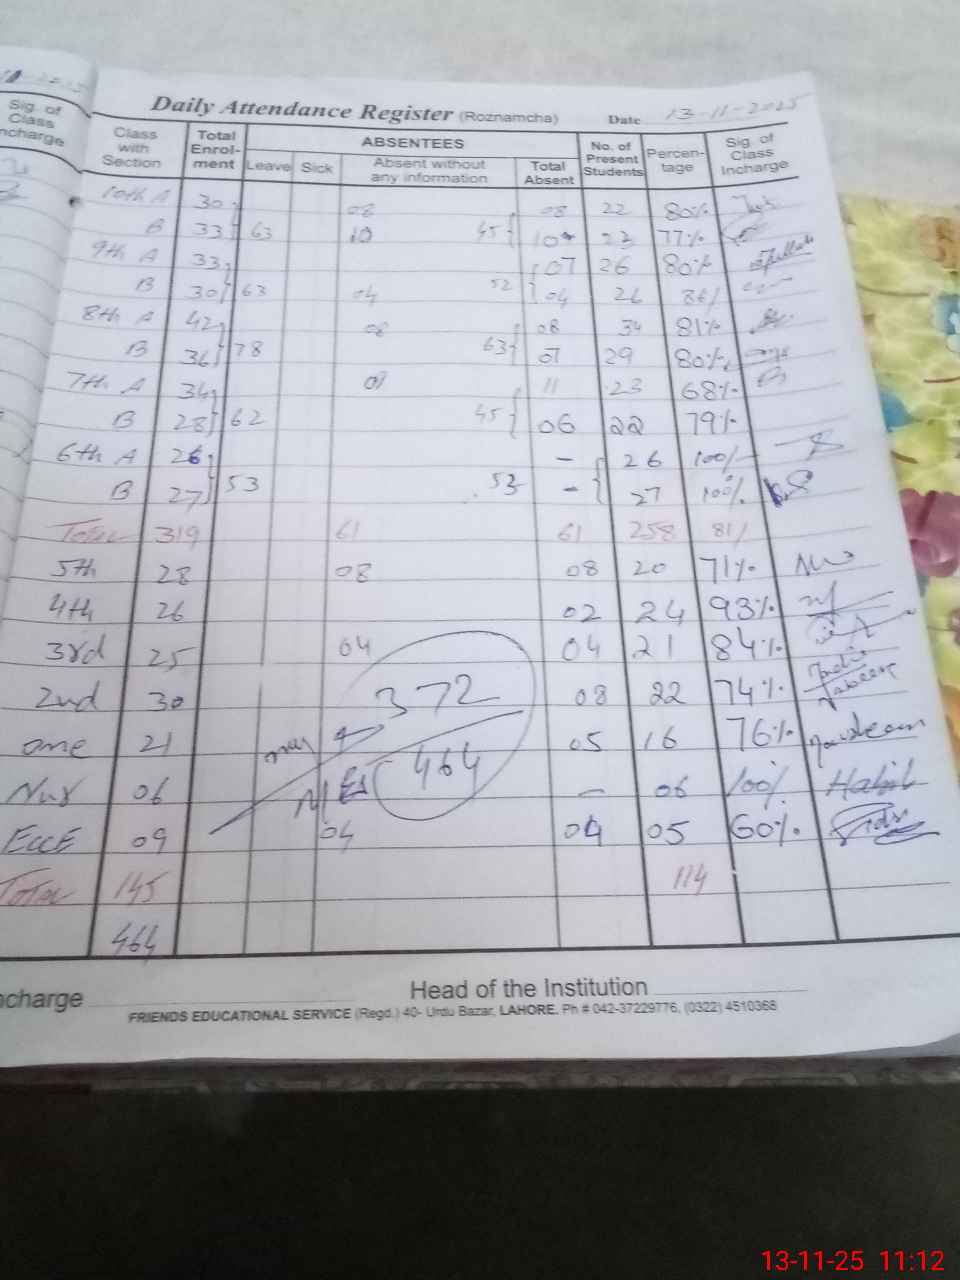 Sig. of
Class
ncharge
Daily Attendance Register (Roznamcha) Date 13-11-2025
Class with Section Total Enrol-ment ABSENTEES No. of Present Students Percen-tage Sig. of Class Incharge
Leave Sick Absent without any information Total Absent
10th A 30 08 08 22 80%
B 33 63 10 45 10 23 77%
9th A 33 07 26 80%
B 30 63 04 52 04 26 86%
8th A 42 08 08 34 81%
B 36 78 63 07 29 80%
7th A 34 07 11 23 68%
B 28 62 45 06 22 79%
6th A 26 - 26 100%
B 27 53 53 - 27 100%
Total 319 61 61 258 81%
5th 28 08 08 20 71%
4th 26 02 24 93%
3rd 25 04 04 21 84%
2nd 30 372 08 22 74%
one 21 05 16 76%
Nur 06 464 - 06 100%
EccE 09 04 04 05 60%
Total 145 114
464
ncharge Head of the Institution
FRIENDS EDUCATIONAL SERVICE (Regd.) 40- Urdu Bazar, LAHORE. Ph # 042-37229776, (0322) 4510368
13-11-25 11:12